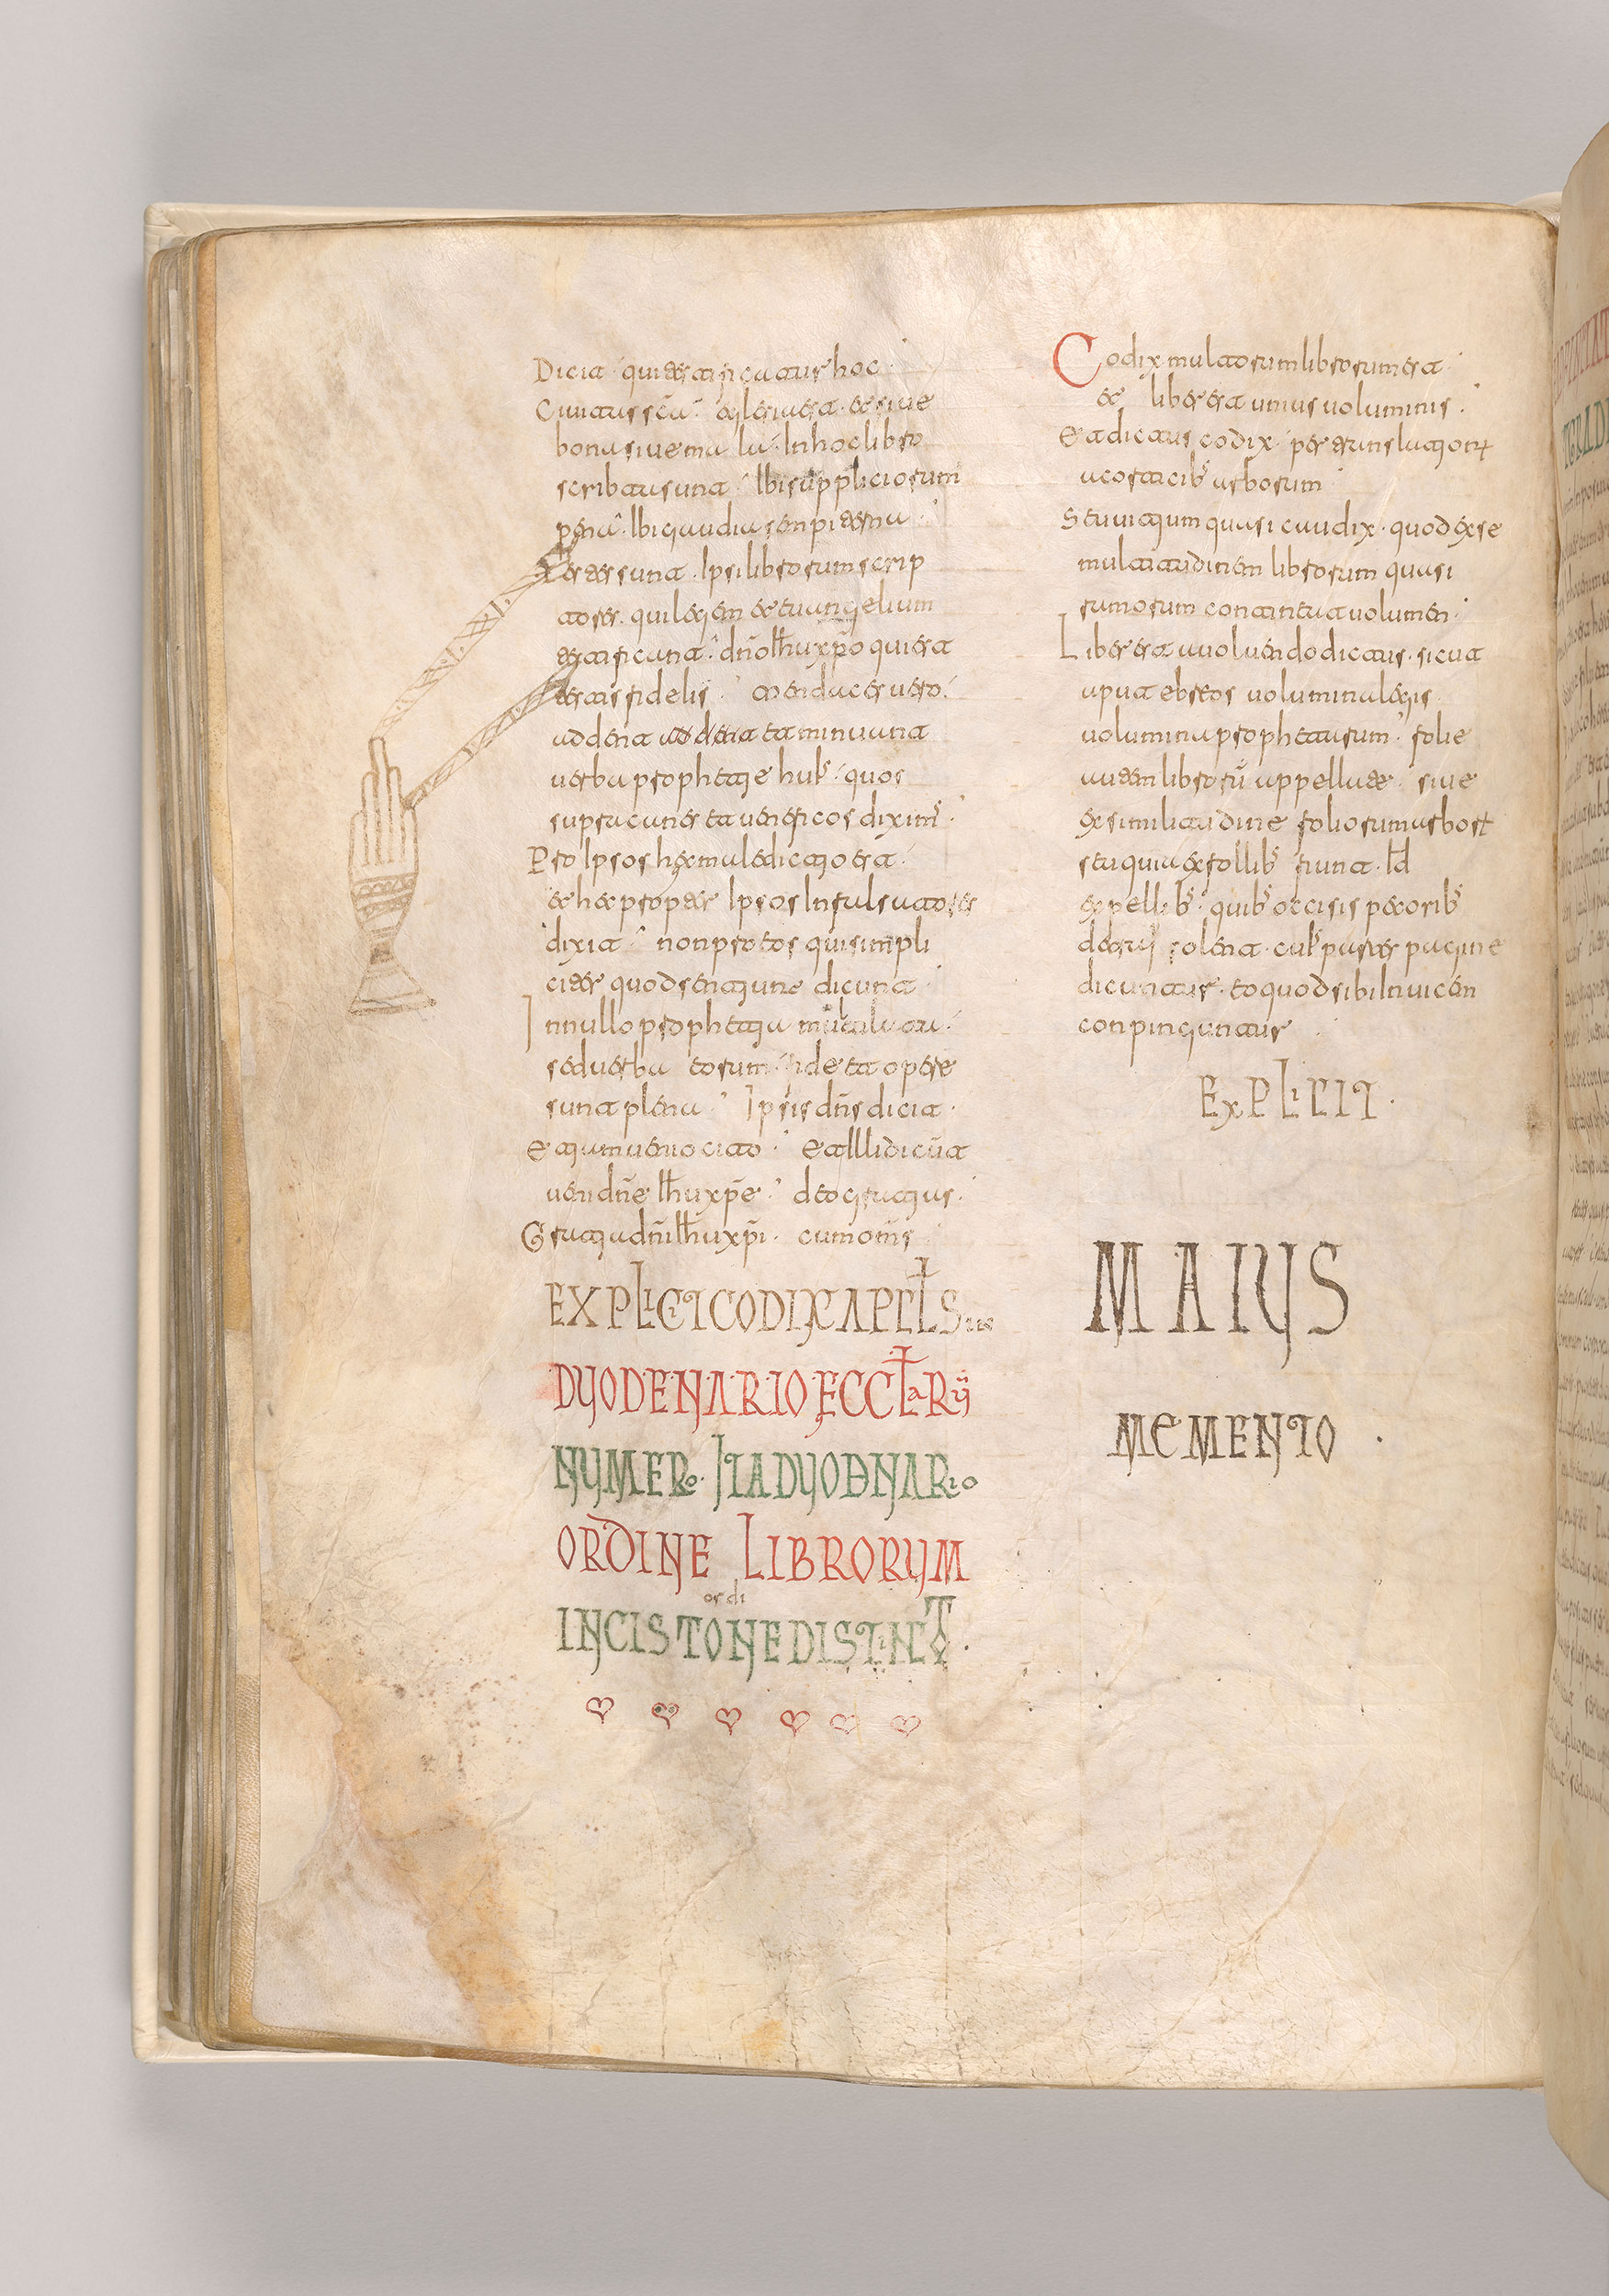 Dicit qui testificatur hoc
Civitas scā eglesia est et sive
bona sive mala In hoc libro
scribta sunt Ibi suppliciorum
pena Ibi gaudia senpiterna
Testes sunt Ipsi librorum scrip
tores qui legem et evangelium
testificant dño Ihu xpo qui est
testis fidelis Mendaces vero
addent et minuunt
verba prophetie huius quos
supra canes et veneficos diximus
Pro Ipsos hec maledictio est
et hec propter Ipsos
dixit non pro eos qui simpli
citer quod sentiunt dicunt
In nullo prophetia mutilata
sed verba eorum fide et opere
sunt plena Ipsis dñs dicit
Etiam venio cito Et Illi dicūt
veni dñe Ihu xpe deo gratias
Gratia dñi Ihu xpi cum omñs
EXPLICIT CODIX APCLSIN
DUODENARIO ECCLARII
NUMERO ITA DUODENARIO
ORDINE LIBRORUM
ordi
INCISTONE DISTINCTO
Codix multorum librorum est
et liber est unius voluminis
Et dictus codix per translationem
a corticibus arborum
seu vitium quasi caudix quod ex se
multitudinem librorum quasi
ramorum contineat volumen
Liber est a volvendo dictus sicut
aput ebreos volumina legis
volumina prophetarum folie
autem librorū appellate sive
ex similitudine foliorum arborum
seu quia ex follibus fiunt Id
ex pellibus quibus occisis pecoribus
detrai solent cuius partes pagine
dicuntur eo quod sibi Invicem
conpinguntur
EXPLICIT
MAIUS
MEMENTO